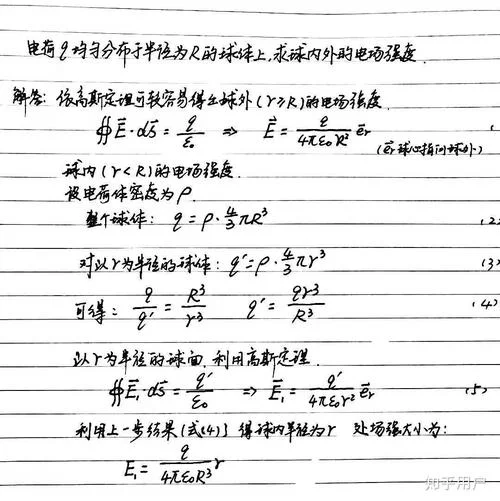 电荷q均匀分布于半径为R的球体上,求球内外的电场强度.
解答:依高斯定理可较容易得出球外(r≥R)的电场强度
∯E⃗·dS⃗ = q/ε₀ ⇒ E⃗ = q/4πε₀R² e⃗r
(e⃗r 球心指向球外)
球内(r<R)的电场强度.
设电荷体密度为ρ.
整个球体: q=ρ·4/3πR³ (2)
对以r为半径的球体: q'=ρ·4/3πr³ (3)
可得: q/q' = R³/r³ q' = qr³/R³ (4)
以r为半径的球面,利用高斯定理.
∯E⃗₁·dS⃗ = q'/ε₀ ⇒ E⃗₁ = q'/4πε₀r² e⃗r (5)
利用上一步结果(式(4)) 得球内半径为r 处场强大小为:
E₁ = q/4πε₀R³ r
知乎用户